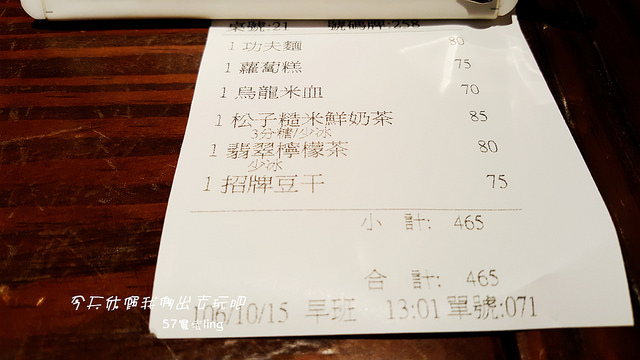 桌號:21 號碼牌:258
1 功夫麵 80
1 蘿蔔糕 75
1 烏龍米血 70
1 松子糙米鮮奶茶 85
3分糖/少冰
1 翡翠檸檬茶 80
少冰
1 招牌豆干 75
小 計: 465
合 計: 465
106/10/15 早班 13:01 單號:071
今天就個我們出去玩吧
57電走ling